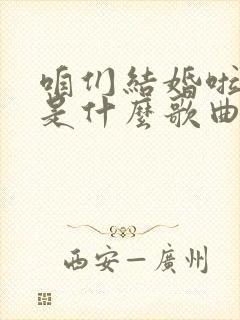 咱们結婚啦
是什麽歌曲
西安—廣州